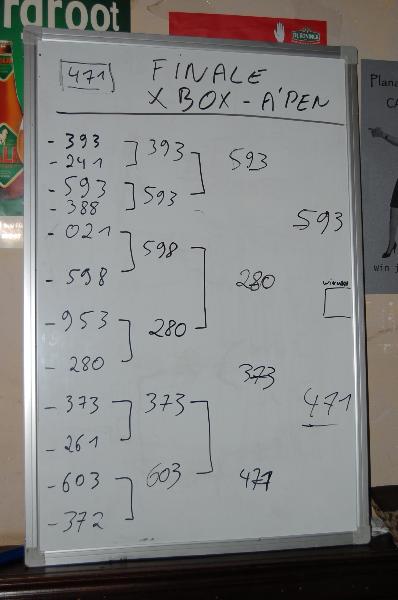 rgroot
471 FINALE
X BOX - A'PEN
- 393
- 241
393
- 593
- 388
593
593
- 021
- 598
598
- 953
- 280
280
280
593
- 373
- 261
373
373
- 603
- 372
603
471
471
win j